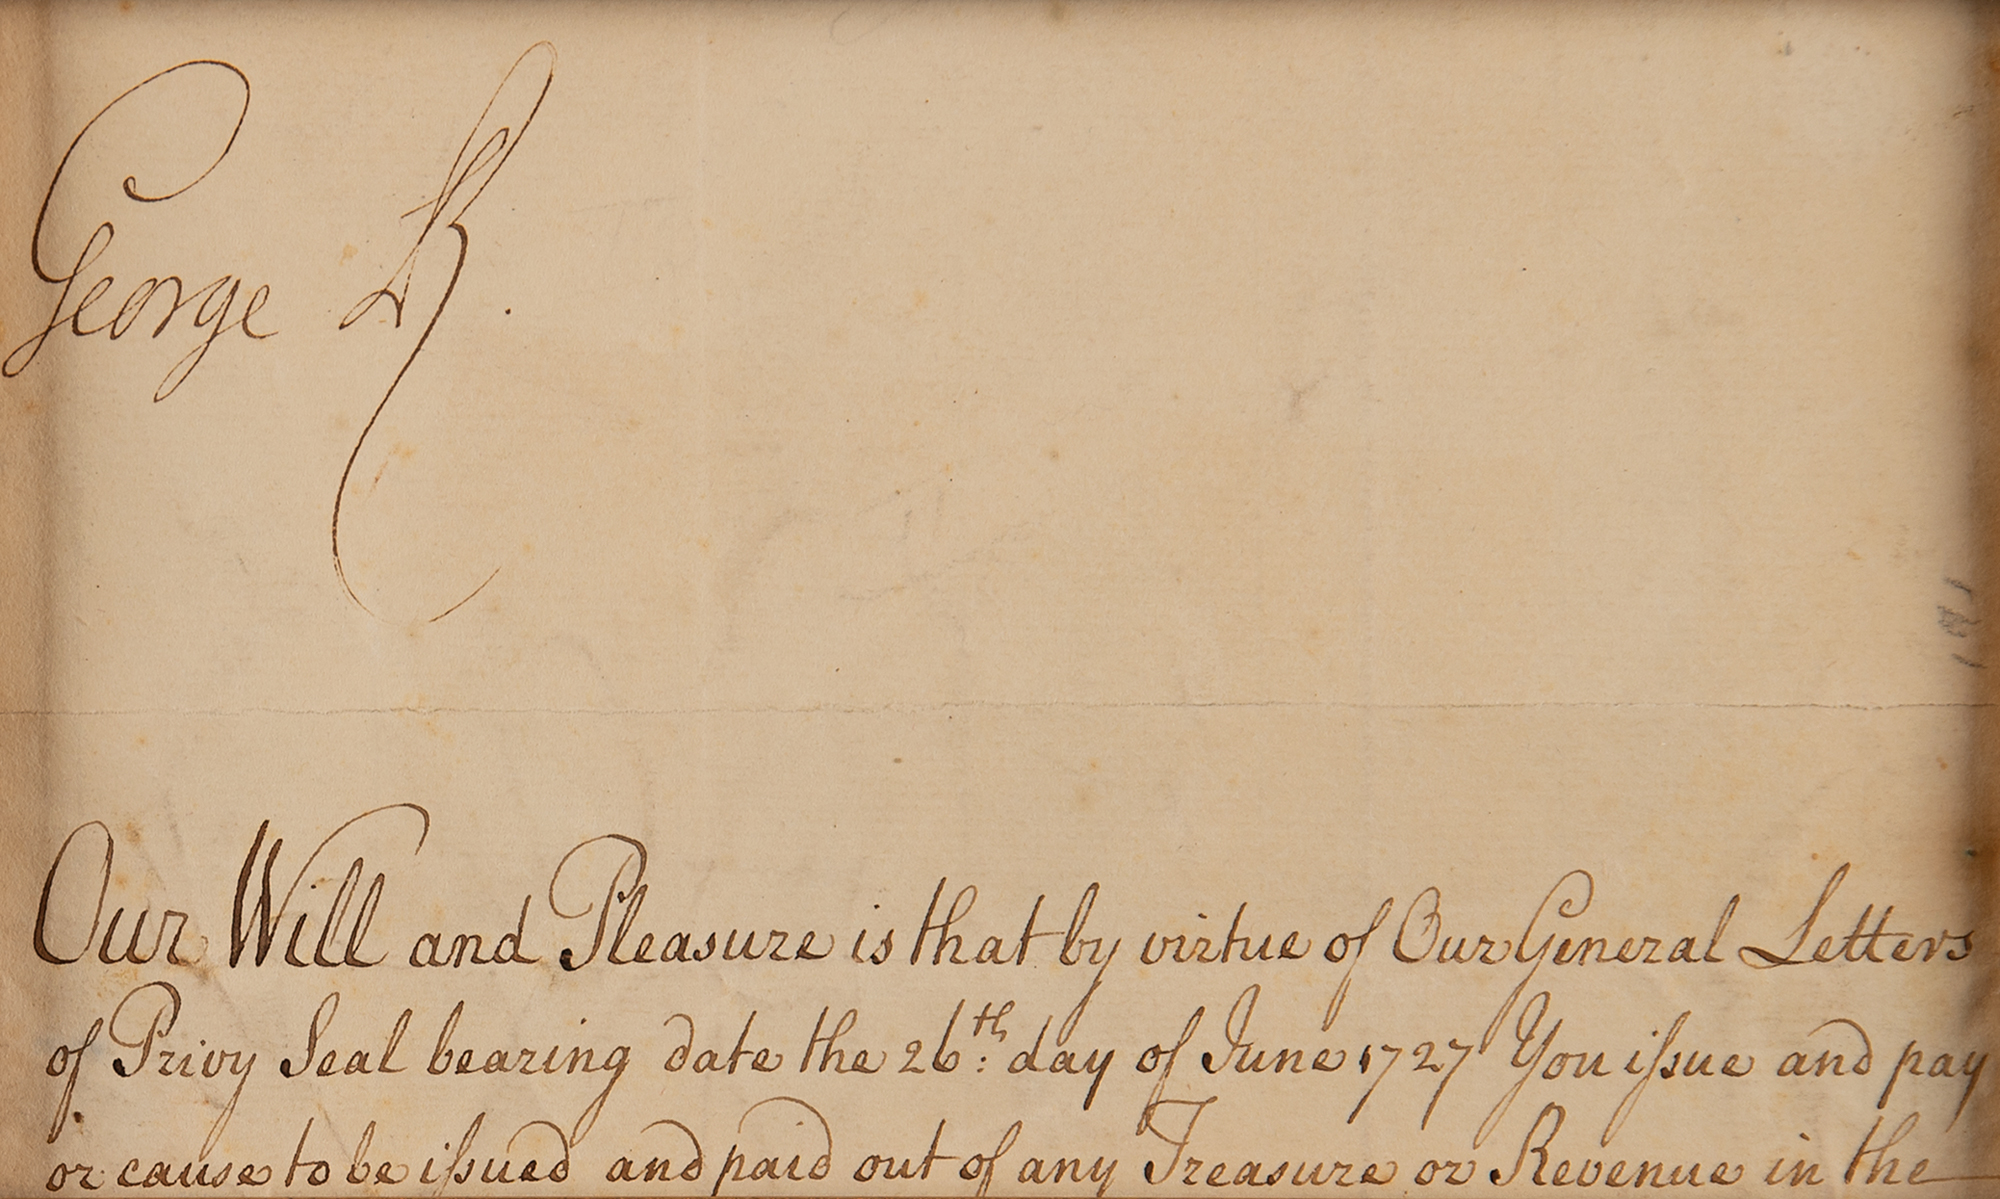 George R.
Our Will and Pleasure is that by virtue of Our General Letters
of Privy Seal bearing date the 26th: day of June 1727 You iſsue and pay
or cause to be iſsued and paid out of any Treasure or Revenue in the